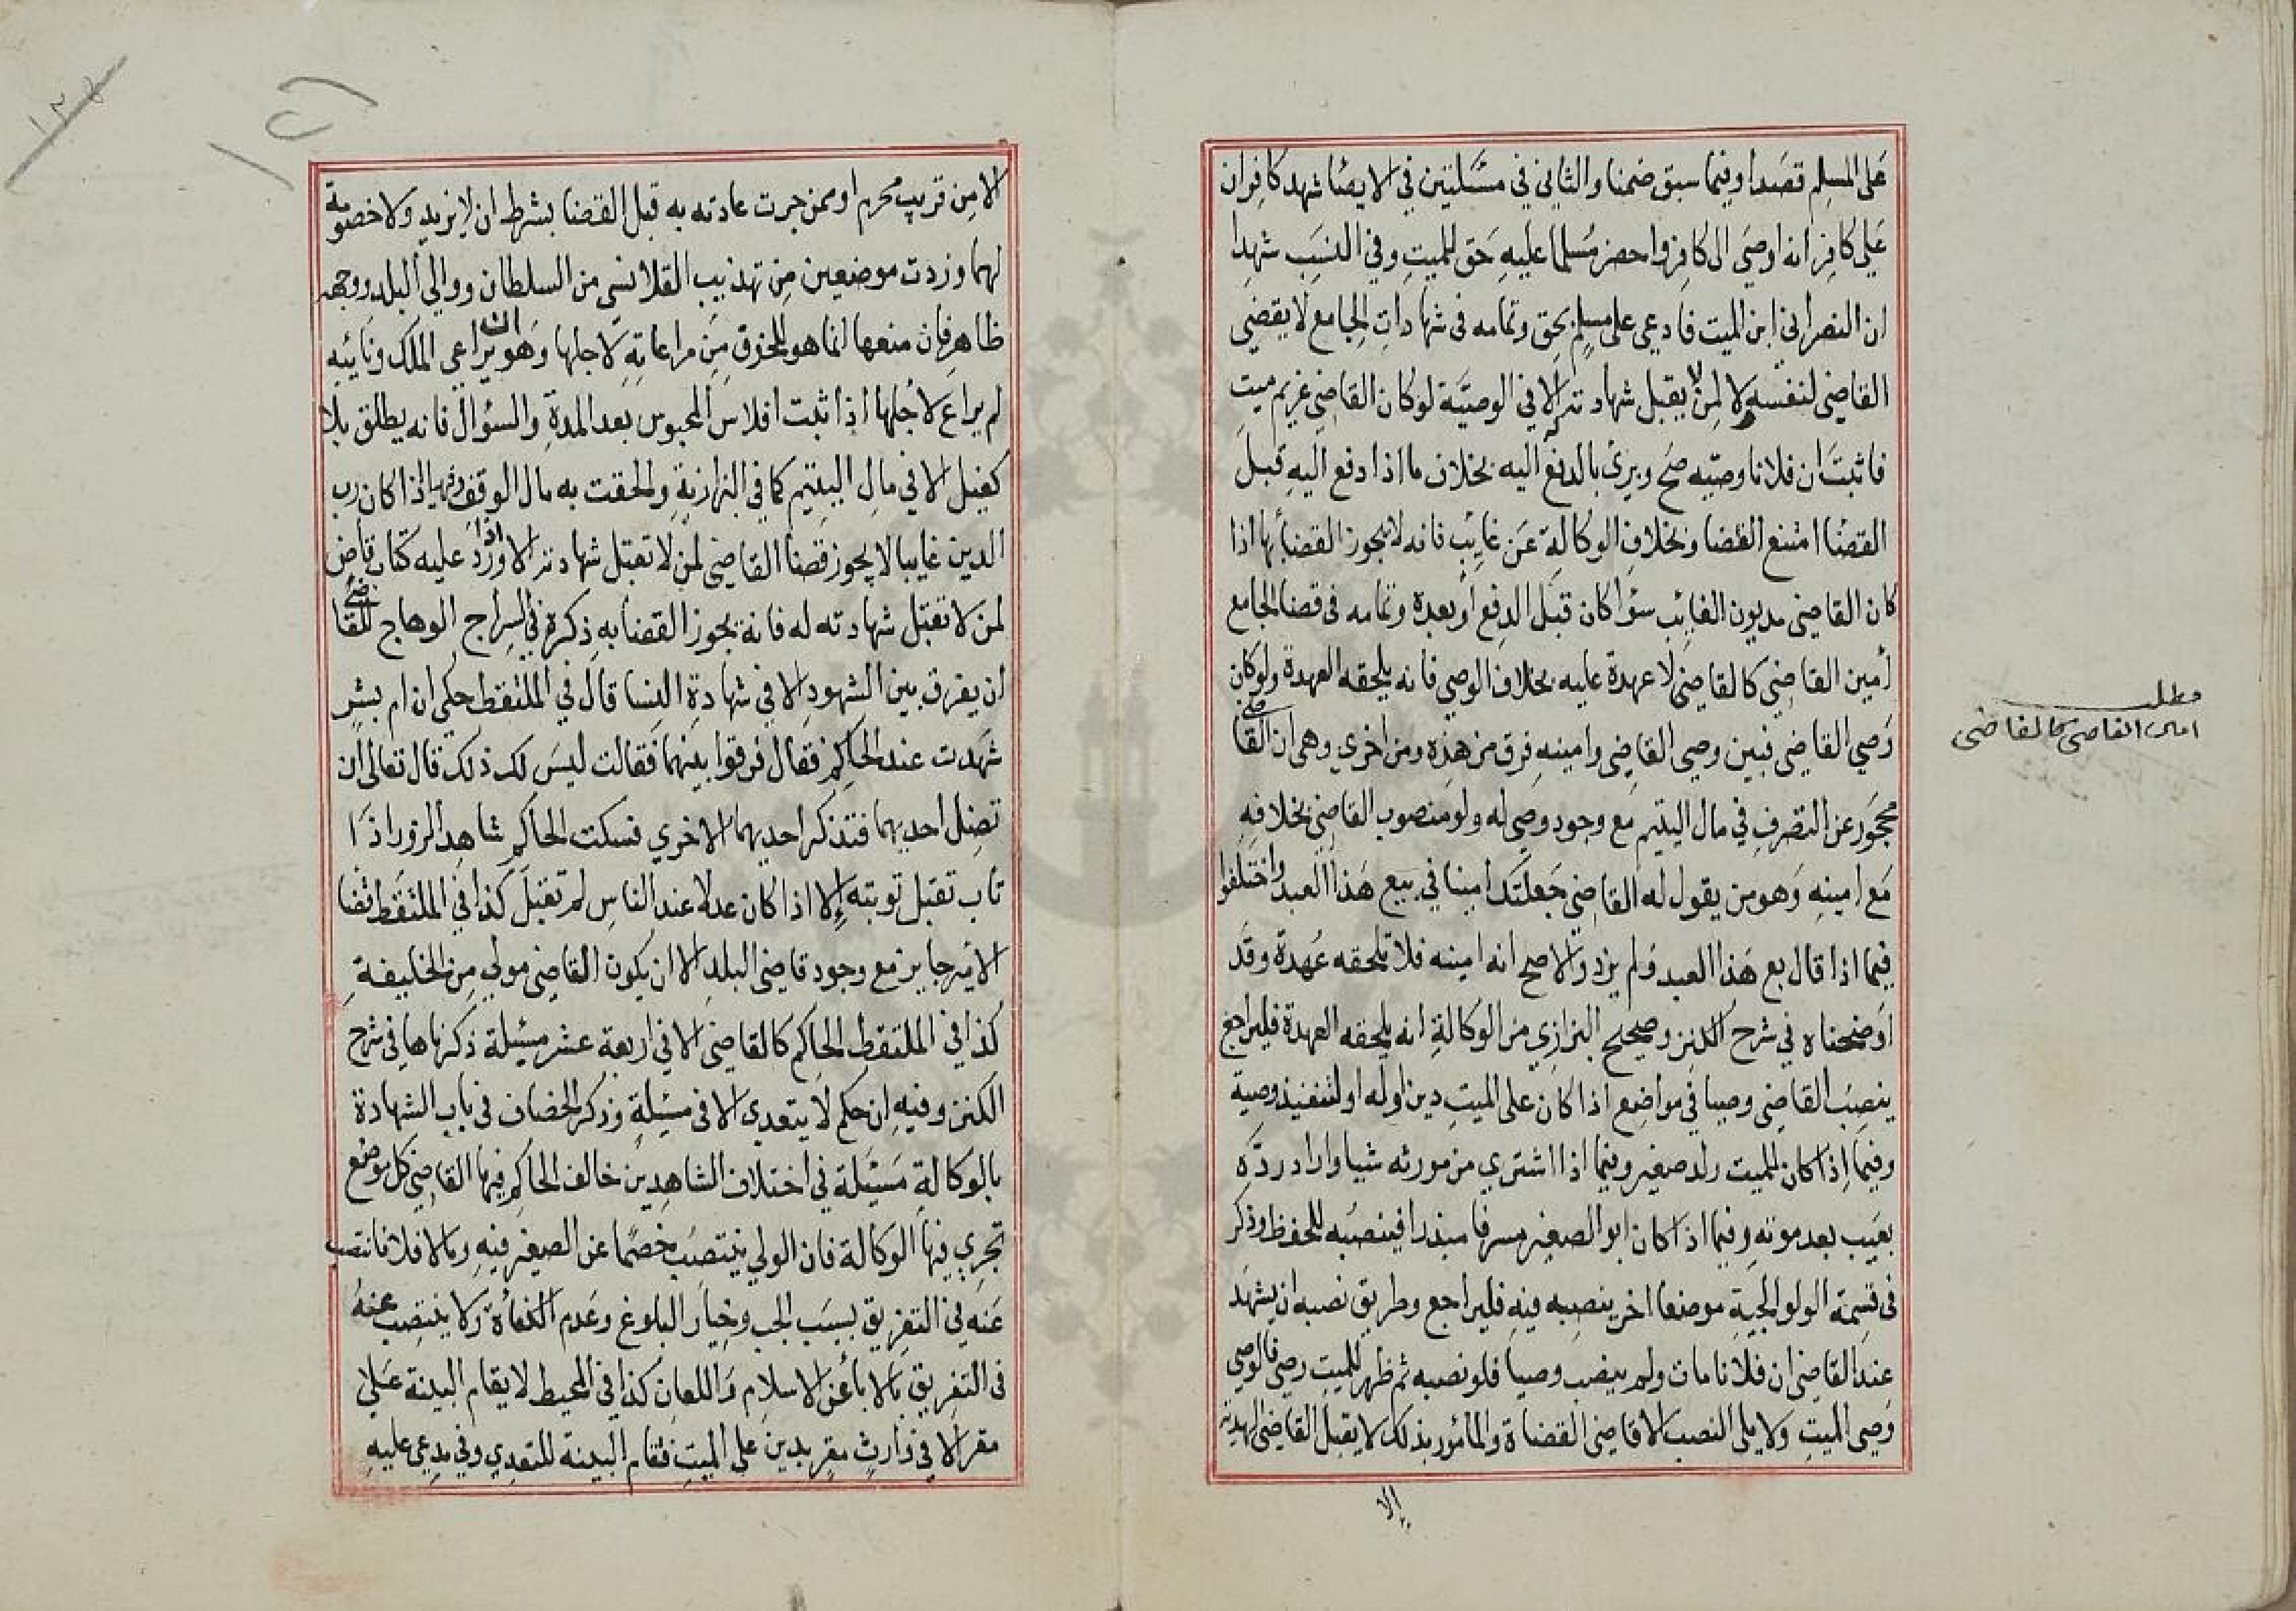 على المسلم قصدا وفيما سبق ضمنا والثاني في مسئلتين في الايصا شهد كافران
على كافر انه اوصى الى كافر واحضر مسلما عليه حق للميت وفي النسب شهدا
ان النصراني ابن الميت فادعى على مسلم بحق وتمامه في شهادات الجامع لا يقضي
القاضي لنفسه ولا لمن لا يقبل شهادته له الا في الوصية لو كان القاضي غريم ميت
فاثبت ان فلانا وصيه صح وبرئ بالدفع اليه بخلاف ما اذا دفع اليه قبل
القضا امتنع القضا وبخلاف الوكالة عن غائب فانه لا يجوز القضا بها اذا
كان القاضي مديون الغائب سوأ كان قبل الدفع او بعده وتمامه في قضا الجامع
أمين القاضي كالقاضي لا عهدة عليه بخلاف الوصي فانه يلحقه العهدة ولو كان
وصي القاضي فبين وصي القاضي وامينه فرق من هذه ومن اخرى وهي ان القاضي
محجور عن التصرف في مال اليتيم مع وجود وصي له ولو منصوب القاضي بخلافه
مع امينه وهو من يقول له القاضي جعلتك امينا في بيع هذا العبد واختلفوا
فيما اذا قال بع هذا العبد ولم يزد والاصح انه امينه فلا تلحقه عهدة وقد
اوضحناه في شرح الكنز وصحح البزازي من الوكالة انه يلحقه العهدة فليراجع
ينصب القاضي وصيا في مواضع اذا كان على الميت دين او له او لتنفيذ وصية
وفيما اذا كان للميت ولد صغير وفيما اذا اشترى من مورثه شيا واراد رده
بعيب بعد موته وفيما اذا كان ابو الصغير مسرفا مبذرا فينصبه للحفظ وذكر
في قسمة الولوالجية موضعا اخر ينصبه فيه فليراجع وطريق نصبه ان يشهد
عند القاضي ان فلانا مات ولم ينصب وصيا فلو نصبه ثم ظهر للميت وصي فالوصي
وصي الميت ولا يلي النصب الا قاضي القضاة والمأمور بذلك لا يقبل القاضي الهدية
الا
مطلب
امين القاضي كالقاضي
الا من قريب محرم او ممن جرت عادته به قبل القضا بشرط ان لا يزيد ولا خصومة
لهما وزدت موضعين من تهذيب القلانسي من السلطان ووالي البلد ووجهه
ظاهر فان منعها انما هو للخوف من مراعاته لاجلها وهو ان يراعي الملك ونائبه
لم يراع لاجلها اذا ثبت افلاس المحبوس بعد المدة والسؤال فانه يطلق بلا
كفيل الا في مال اليتيم كما في البزازية والحقت به مال الوقف وفيما اذا كان رب
الدين غايبا لا يجوز قضا القاضي لمن لا تقبل شهادته الا اذا ورد عليه كتاب قاض
لمن لا تقبل شهادته له فانه يجوز القضا به ذكره في السراج الوهاج للقاضي
ان يفرق بين الشهود الا في شهادة النسا قال في الملتقط حكي ان ام بشر
شهدت عند الحاكم فقال فرقوا بينهما فقالت ليس لك ذلك قال تعالى ان
تضل احديهما فتذكر احديهما الاخرى فسكت الحاكم شاهد الزور اذا
تاب تقبل توبته إلا اذا كان عدلا عند الناس لم تقبل كذا في الملتقط قضا
الامير جايز مع وجود قاضي البلد الا ان يكون القاضي مولى من الخليفة
كذا في الملتقط الحاكم كالقاضي الا في اربعة عشر مسئلة ذكرناها في شرح
الكنز وفيه ان حكم لا يتعدى الا في مسئلة وذكر الخصاف في باب الشهادة
بالوكالة مسئلة في اختلاف الشاهدين خالف الحاكم فيها القاضي كل موضع
تجري فيها الوكالة فان الولي ينتصب خصما عن الصغير فيه وما لا فلا فانتصب
عنه في التفريق بسبب الجب وخيار البلوغ وعدم الكفاءة ولا ينتصب عنه
في التفريق بالابأ عن الاسلام واللعان كذا في المحيط لا يقام البينة على
مقر الا في وارث مقر بدين على الميت فتقام البينة للتعدي وفي مدعى عليه